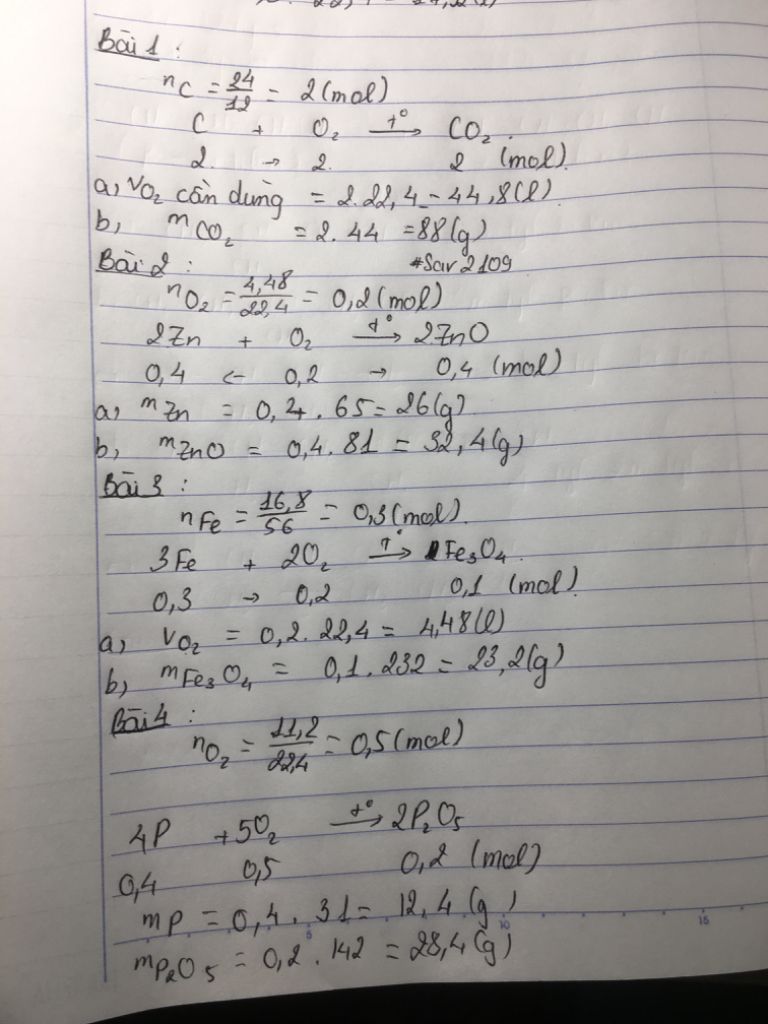 Bài 1 :
nC = 24/12 = 2 (mol)
C + O₂ t°→ CO₂.
2. → 2. 2 (mol)
a, VO₂ cần dùng = 2.22,4 = 44,8(l)
b, mCO₂ = 2.44 = 88(g)
Bài 2 : #Sav2109
nO₂ = 4,48/22,4 = 0,2 (mol)
2Zn + O₂ t°→ 2ZnO
0,4 ← 0,2 → 0,4 (mol)
a, mZn = 0,4 . 65 = 26(g)
b, mZnO = 0,4.81 = 32,4(g)
Bài 3 :
nFe = 16,8/56 = 0,3 (mol).
3Fe + 2O₂ t°→ Fe₃O₄.
0,3 → 0,2 0,1 (mol)
a, VO₂ = 0,2.22,4 = 4,48(l)
b, mFe₃O₄ = 0,1.232 = 23,2(g)
Bài 4 :
nO₂ = 11,2/22,4 = 0,5 (mol)
4P + 5O₂ t°→ 2P₂O₅
0,4 0,5 0,2 (mol)
mP = 0,4 . 31 = 12,4 (g)
10 15
mP₂O₅ = 0,2 . 142 = 28,4 (g)